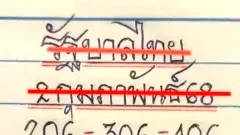 รัฐบาลไทย
2กุมภาพันธ์68
206-306-106